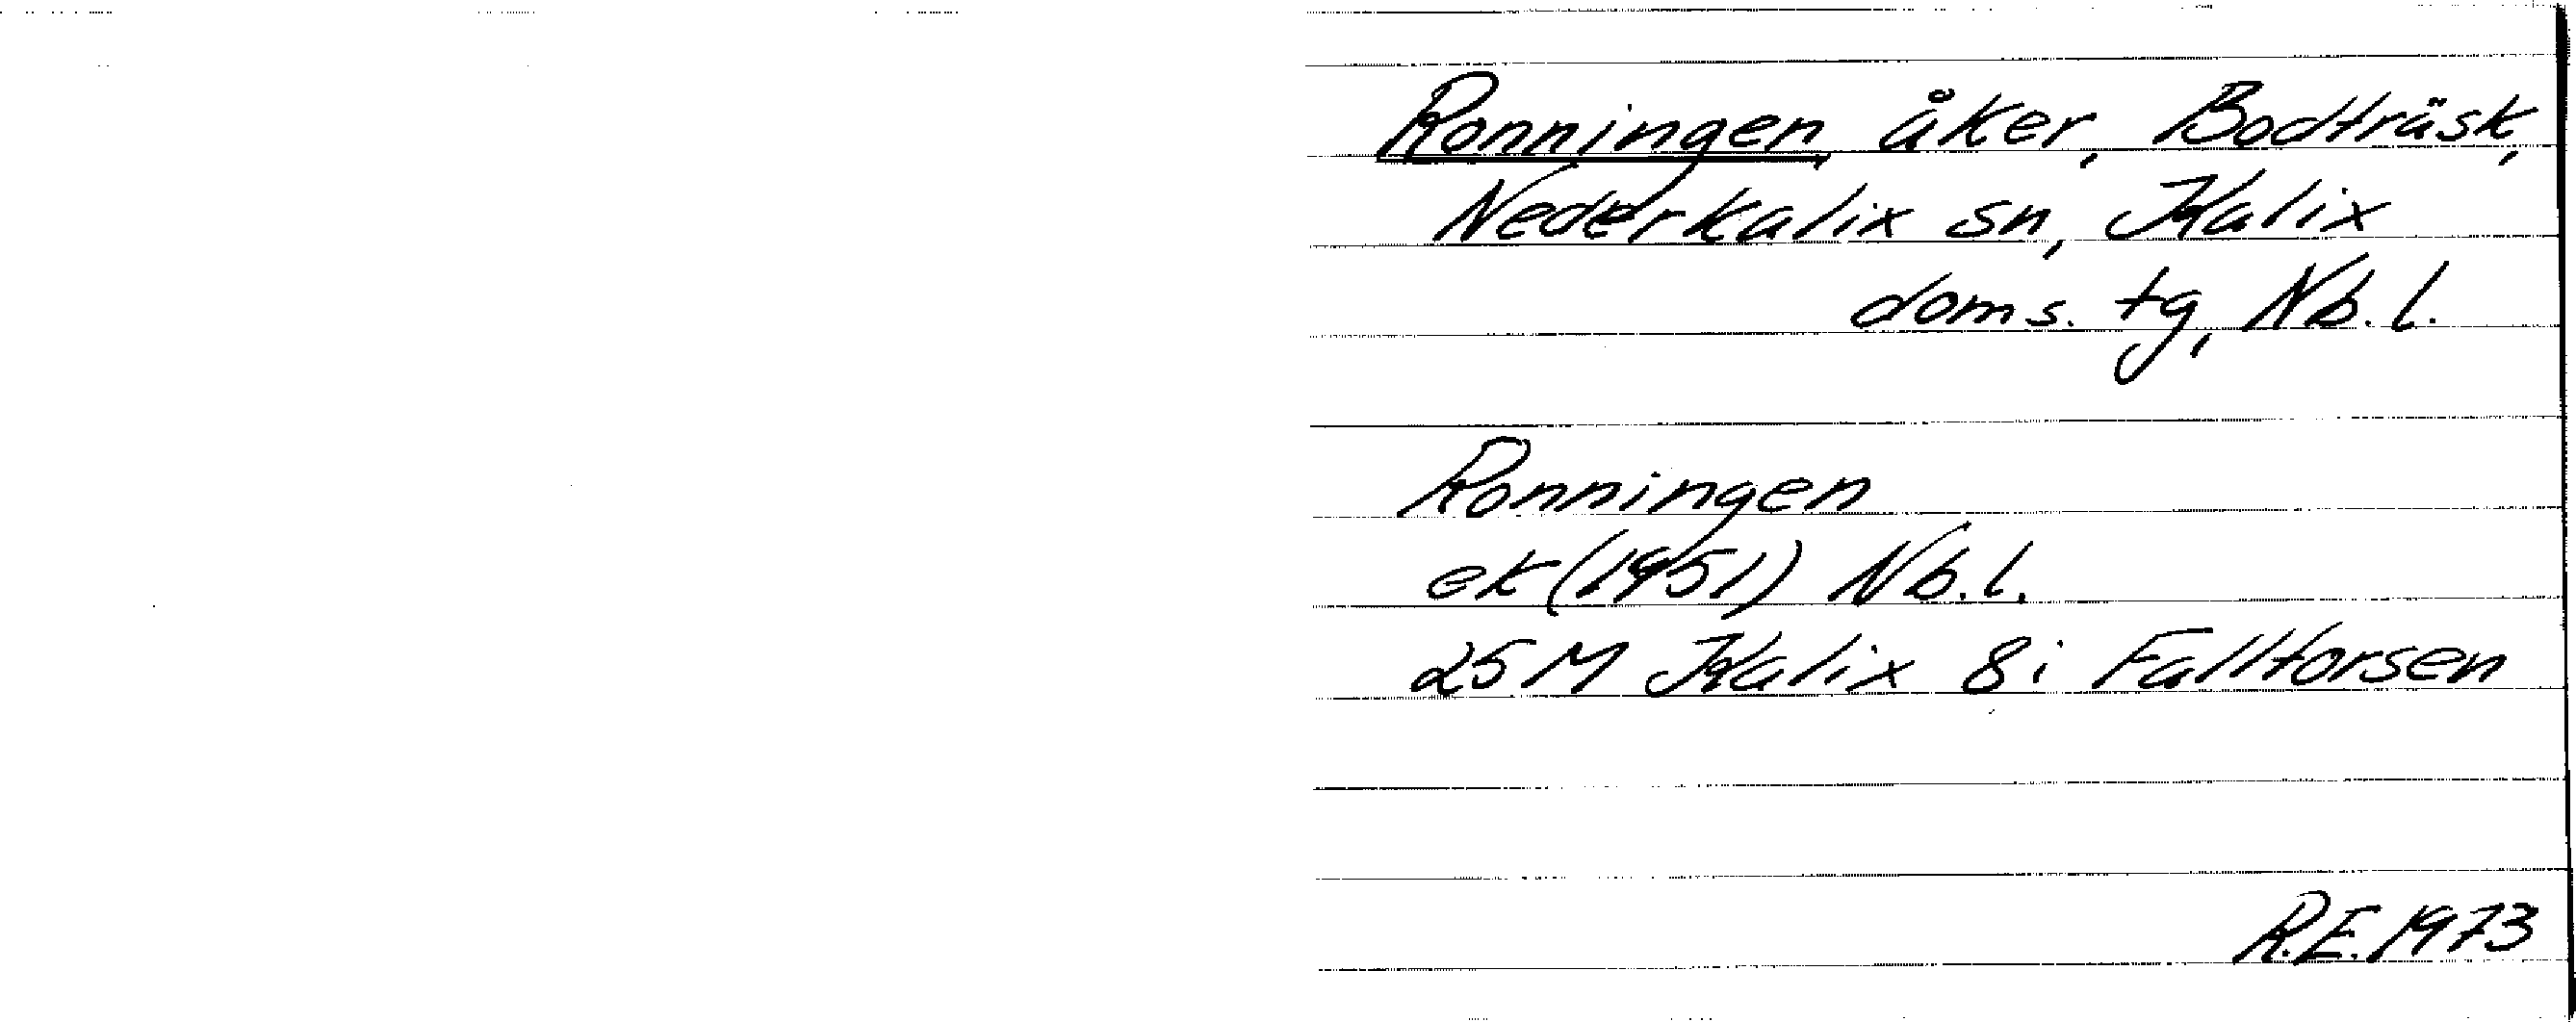 Ronningen, åker, Bodträsk,
Nederkalix sn, Kalix
doms. tg, Nb. l.
Ronningen
ek (1951) Nb. l.
25 M Kalix 8i Falltorsen
R.E. 1973